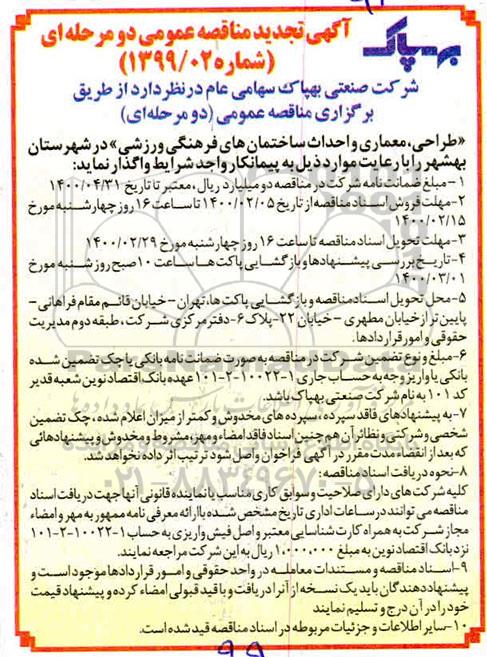 آگهی تجدید مناقصه عمومی دو مرحله ای
(شماره ۱۳۹۹/۰۲)
بهپاک
شرکت صنعتی بهپاک سهامی عام در نظر دارد از طریق
برگزاری مناقصه عمومی (دو مرحله‌ای)
«طراحی، معماری و احداث ساختمان های فرهنگی ورزشی» در شهرستان
بهشهر را با رعایت موارد ذیل به پیمانکار واجد شرایط واگذار نماید:
۱- مبلغ ضمانت نامه شرکت در مناقصه دو میلیارد ریال، معتبر تا تاریخ ۱۴۰۰/۰۴/۳۱
۲- مهلت فروش اسناد مناقصه از تاریخ ۱۴۰۰/۰۲/۰۵ تا ساعت ۱۶ روز چهارشنبه مورخ
۱۴۰۰/۰۲/۱۵
۳- مهلت تحویل اسناد مناقصه تا ساعت ۱۶ روز چهارشنبه مورخ ۱۴۰۰/۰۲/۲۹
۴- تاریخ بررسی پیشنهادها و بازگشایی پاکت ها ساعت ۱۰ صبح روز شنبه مورخ
۱۴۰۰/۰۳/۰۱
۵- محل تحویل اسناد مناقصه و بازگشایی پاکت ها، تهران - خیابان قائم مقام فراهانی -
پایین تر از خیابان مطهری - خیابان ۲۲- پلاک ۶- دفتر مرکزی شرکت، طبقه دوم مدیریت
حقوقی و امور قراردادها.
۶- مبلغ و نوع تضمین شرکت در مناقصه به صورت ضمانت نامه بانکی یا چک تضمین شده
بانکی یا واریز وجه به حساب جاری ۱-۱۰۰۲۲-۲-۱۰۱ عهده بانک اقتصاد نوین شعبه قدیر
کد ۱۰۱ به نام شرکت صنعتی بهپاک باشد.
۷- به پیشنهادهای فاقد سپرده، سپرده های مخدوش و کمتر از میزان اعلام شده، چک تضمین
شخصی و شرکتی و نظائر آن هم چنین اسناد فاقد امضاء و مهر، مشروط و مخدوش و پیشنهادهائی
که بعد از انقضاء مدت مقرر در آگهی فراخوان واصل شود ترتیب اثر داده نخواهد شد.
۸- نحوه دریافت اسناد مناقصه:
کلیه شرکت های دارای صلاحیت و سوابق کاری مناسب یا نماینده قانونی آنها جهت دریافت اسناد
مناقصه می توانند در ساعات اداری تاریخ مشخص شده با ارائه معرفی نامه ممهور به مهر و امضاء
مجاز شرکت به همراه کارت شناسایی معتبر و اصل فیش واریزی به حساب ۱-۱۰۰۲۲-۲-۱۰۱
نزد بانک اقتصاد نوین به مبلغ ۱،۰۰۰،۰۰۰ ریال به این شرکت مراجعه نمایند.
۹- اسناد مناقصه و مستندات معامله در واحد حقوقی و امور قراردادها موجود است و
پیشنهاد دهندگان باید یک نسخه از آنرا دریافت و با قید قبولی امضاء کرده و پیشنهاد قیمت
خود را در آن درج و تسلیم نمایند
۱۰- سایر اطلاعات و جزئیات مربوطه در اسناد مناقصه قید شده است.
۰۲۱-۸۸۳۴۹۶۷۰-۵